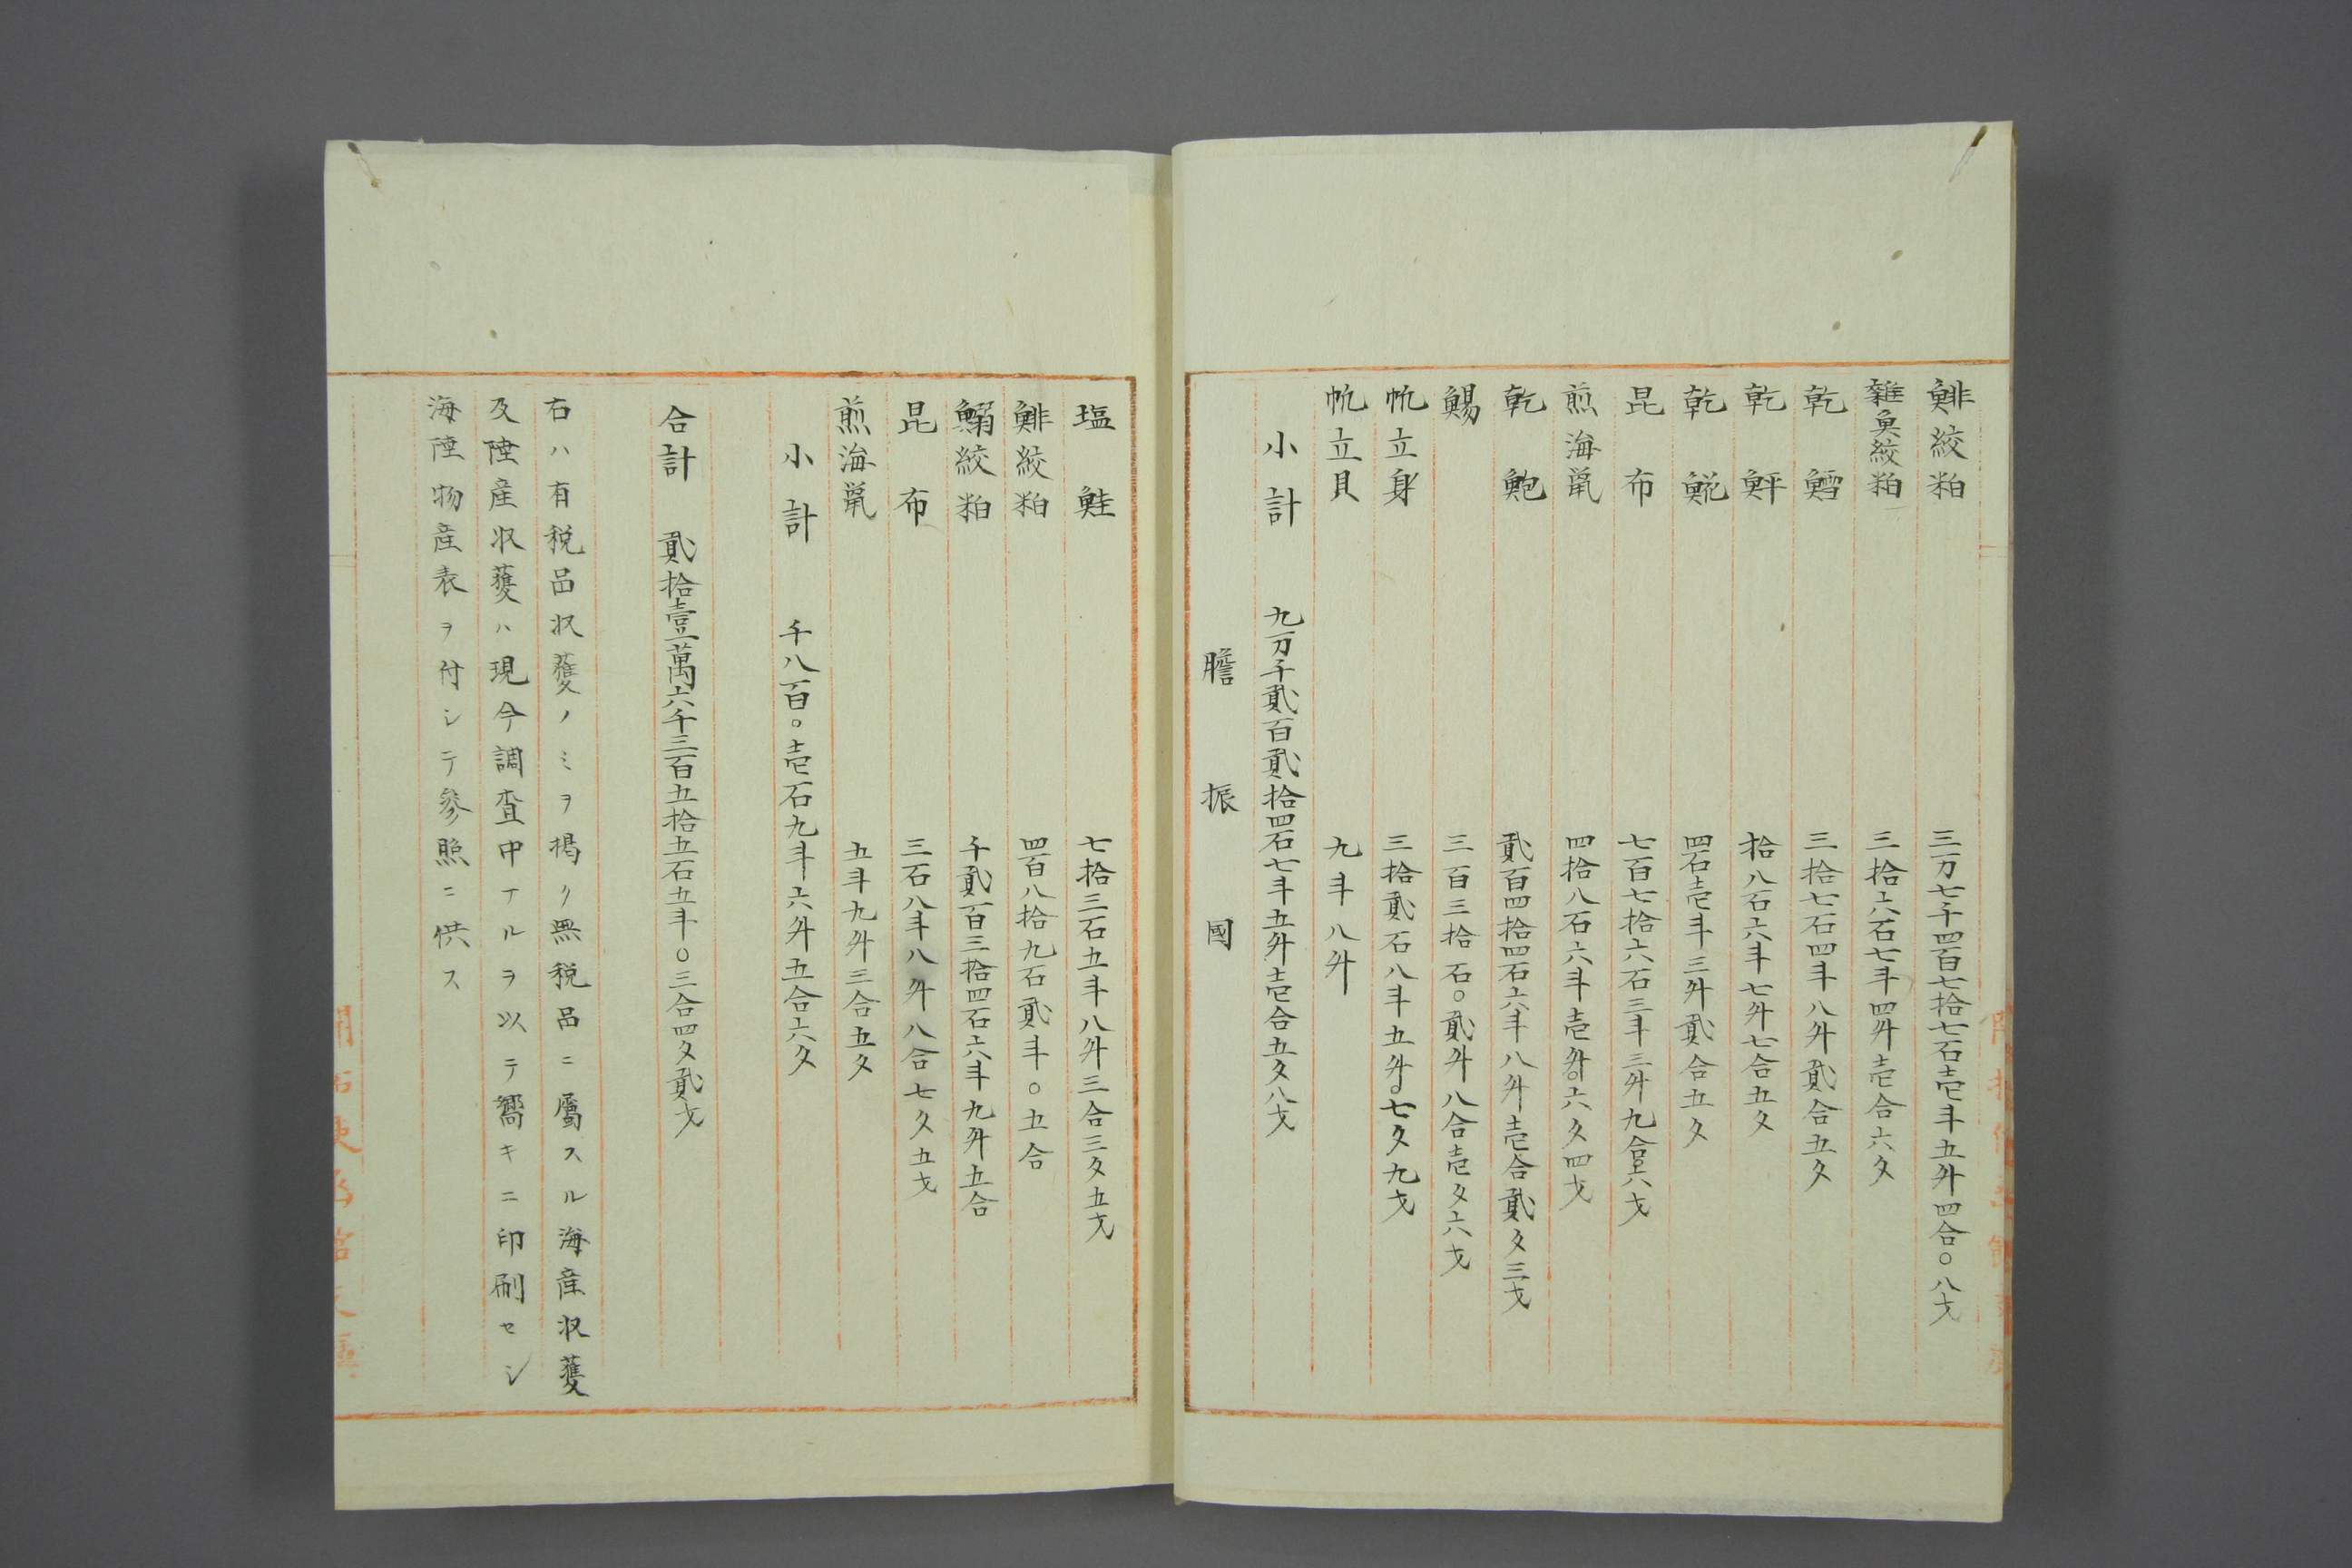 鯡絞粕 三万七千四百七拾七石壱斗五舛四合〇八才
雜魚絞粕 三拾六石七斗四舛壱合六夕
乾鱈 三拾七石四斗八舛貳合五夕
乾鮃 拾八石六斗七舛七合五夕
乾鯡 四石壱斗三舛貳合五夕
昆布 七百七拾六石三斗三舛九合六才
煎海鼠 四拾八石六斗壱舛〇六夕四才
乾鮑 貳百四拾四石六斗八舛壱合貳夕三才
鯣 三百三拾石〇貳舛八合壱夕六才
帆立身 三拾貳石八斗五舛〇七夕九才
帆立貝 九斗八舛
小計 九万千貳百貳拾四石七斗五舛壱合五夕八才
膽振國
塩鮭 七拾三石五斗八舛三合三夕五才
鯡絞粕 四百八拾九石貳斗〇五合
鰯絞粕 千貳百三拾四石六斗九舛五合
昆布 三石八斗八舛八合七夕五才
煎海鼠 五斗九舛三合五夕
小計 千八百〇壱石九斗六舛五合六夕
合計 貳拾壹萬六千三百五拾五石五斗〇三合四夕貳才
右ハ有税品収獲ノミヲ掲ク無税品ニ屬スル海産収獲
及陸産収獲ハ現今調査中ナルヲ以テ嚮キニ印刷セシ
海陸物産表ヲ付シテ參照ニ供ス